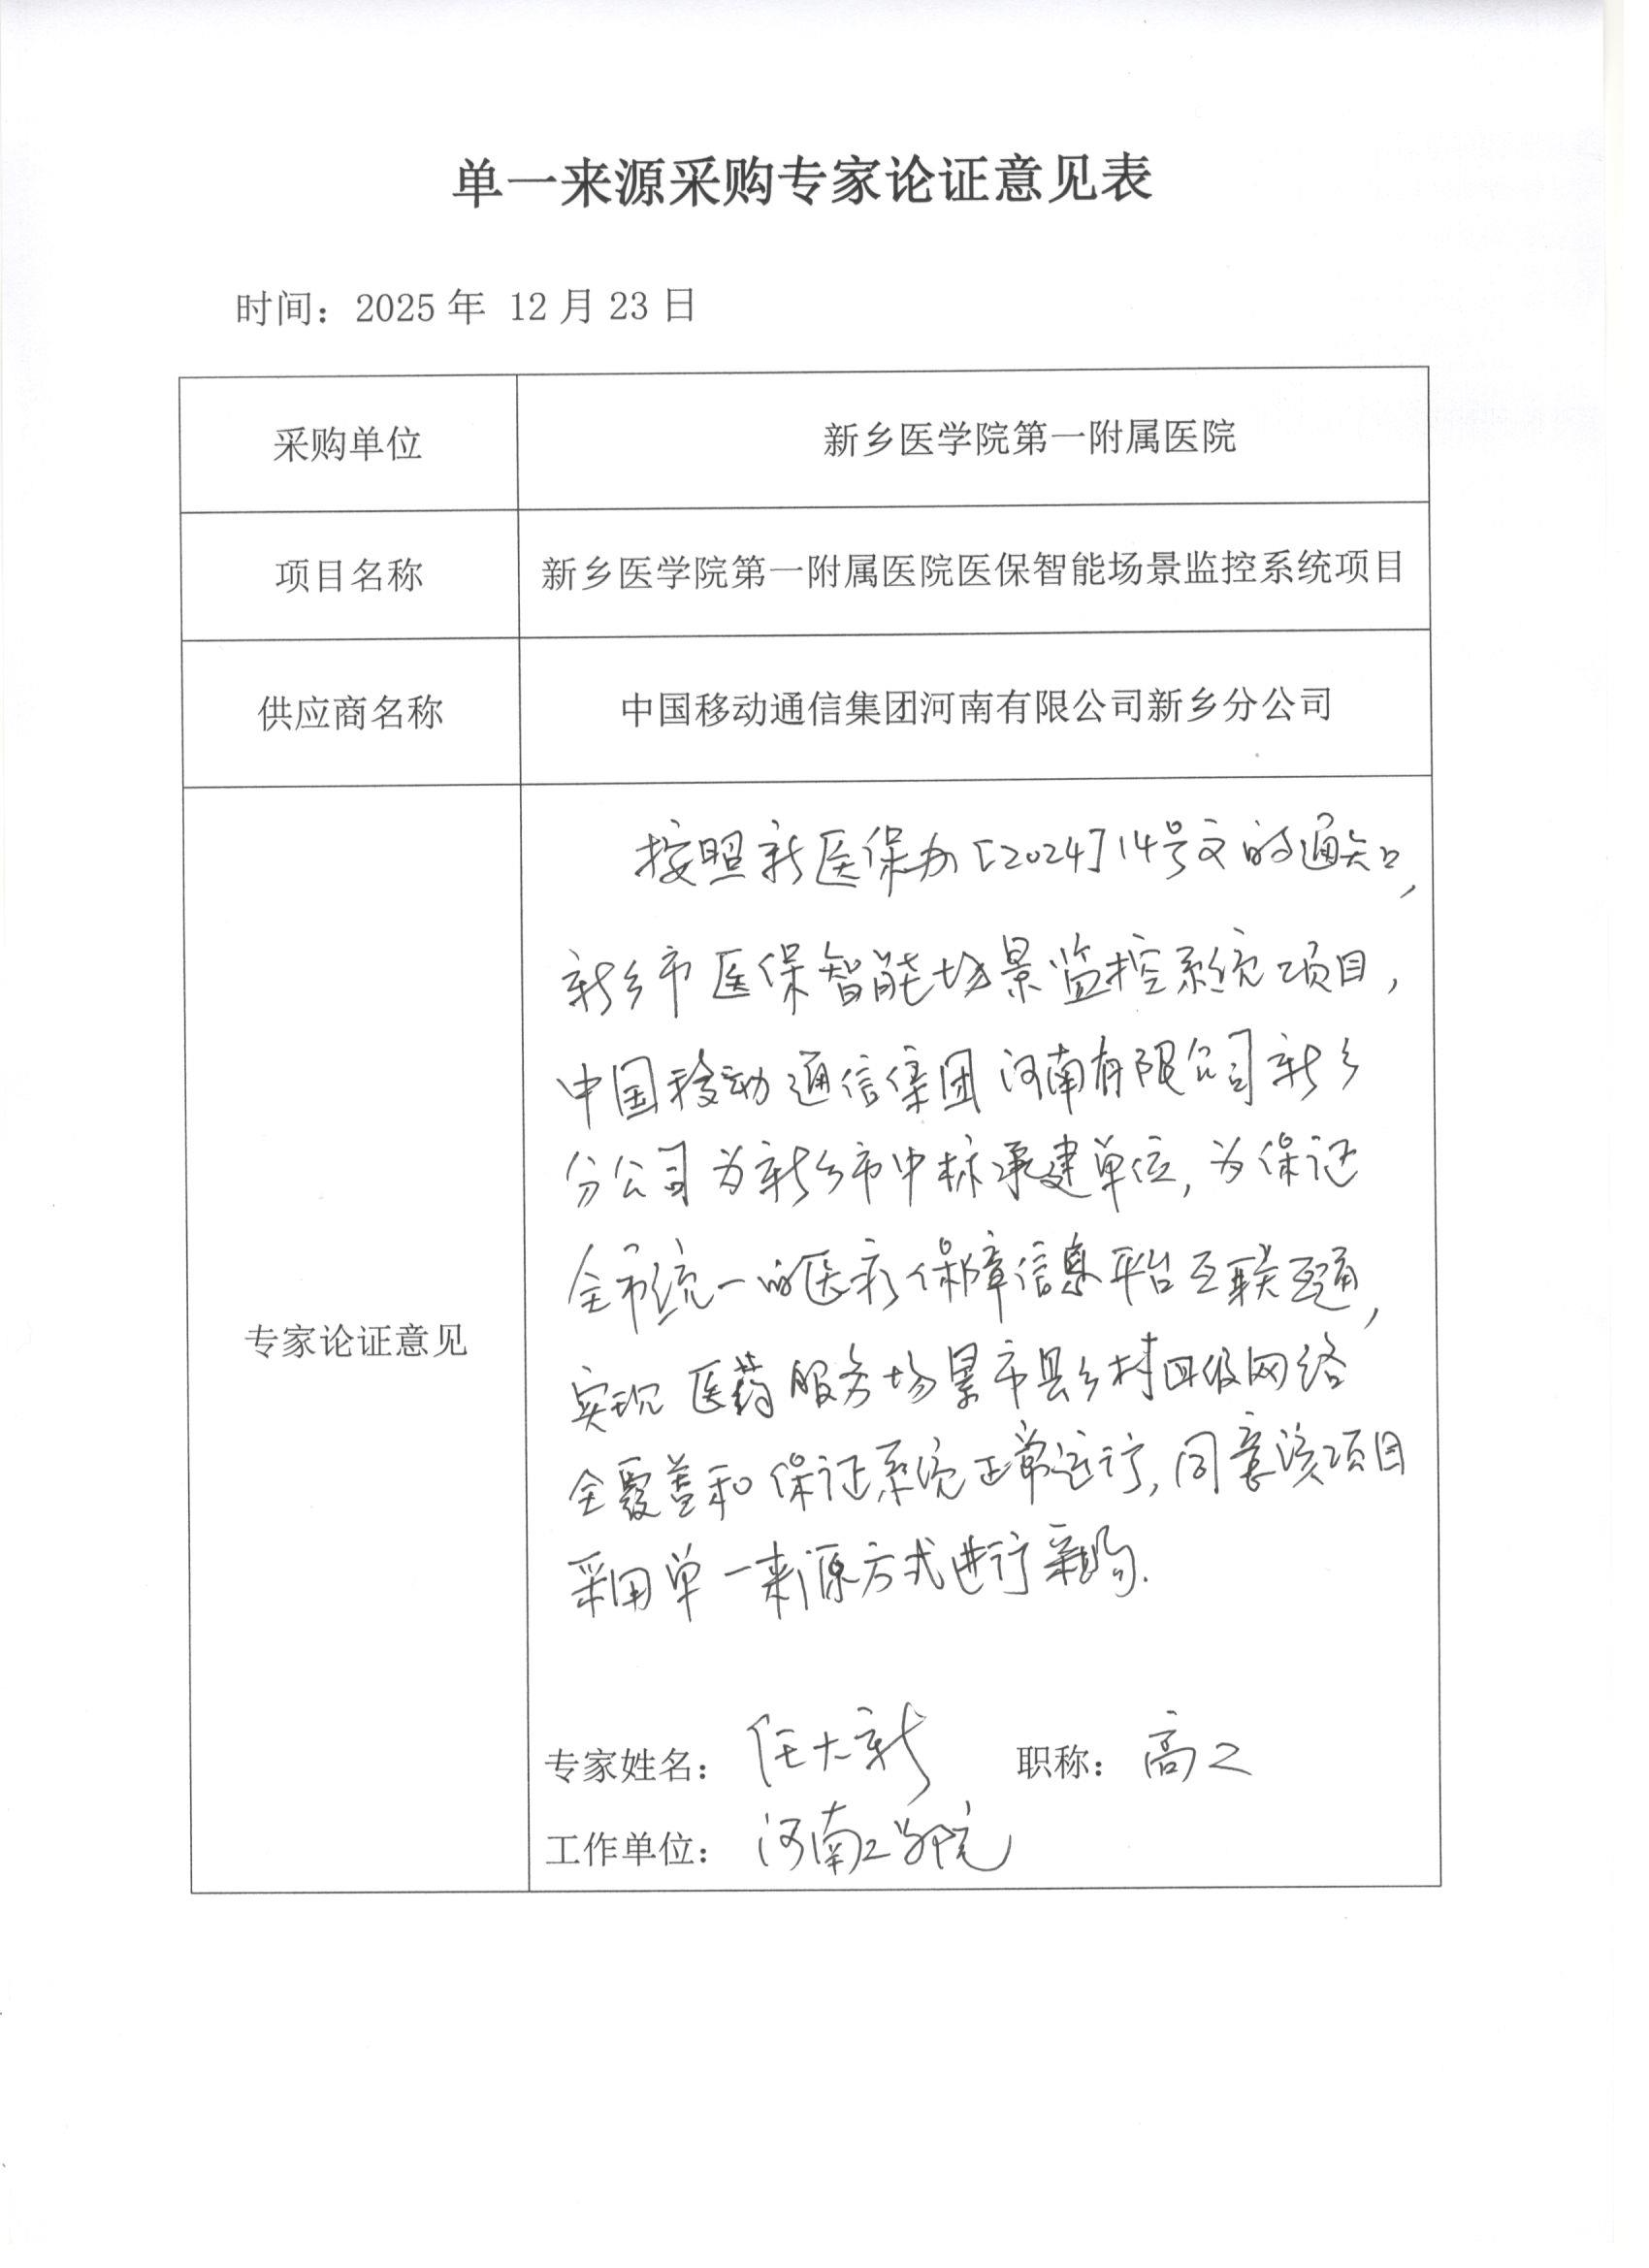 单一来源采购专家论证意见表
时间：2025年 12月23日
采购单位
新乡医学院第一附属医院
项目名称
新乡医学院第一附属医院医保智能场景监控系统项目
供应商名称
中国移动通信集团河南有限公司新乡分公司
专家论证意见
按照新医保办[2024]14号文的通知，
新乡市医保智能场景监控系统项目，
中国移动通信集团河南有限公司新乡
分公司为新乡市中标承建单位，为保证
全市统一的医疗保障信息平台互联互通，
实现医药服务场景市县乡村四级网络
全覆盖和保证系统正常运行，同意该项目
采用单一来源方式进行采购.
专家姓名：任大新 职称：高工
工作单位：河南工学院